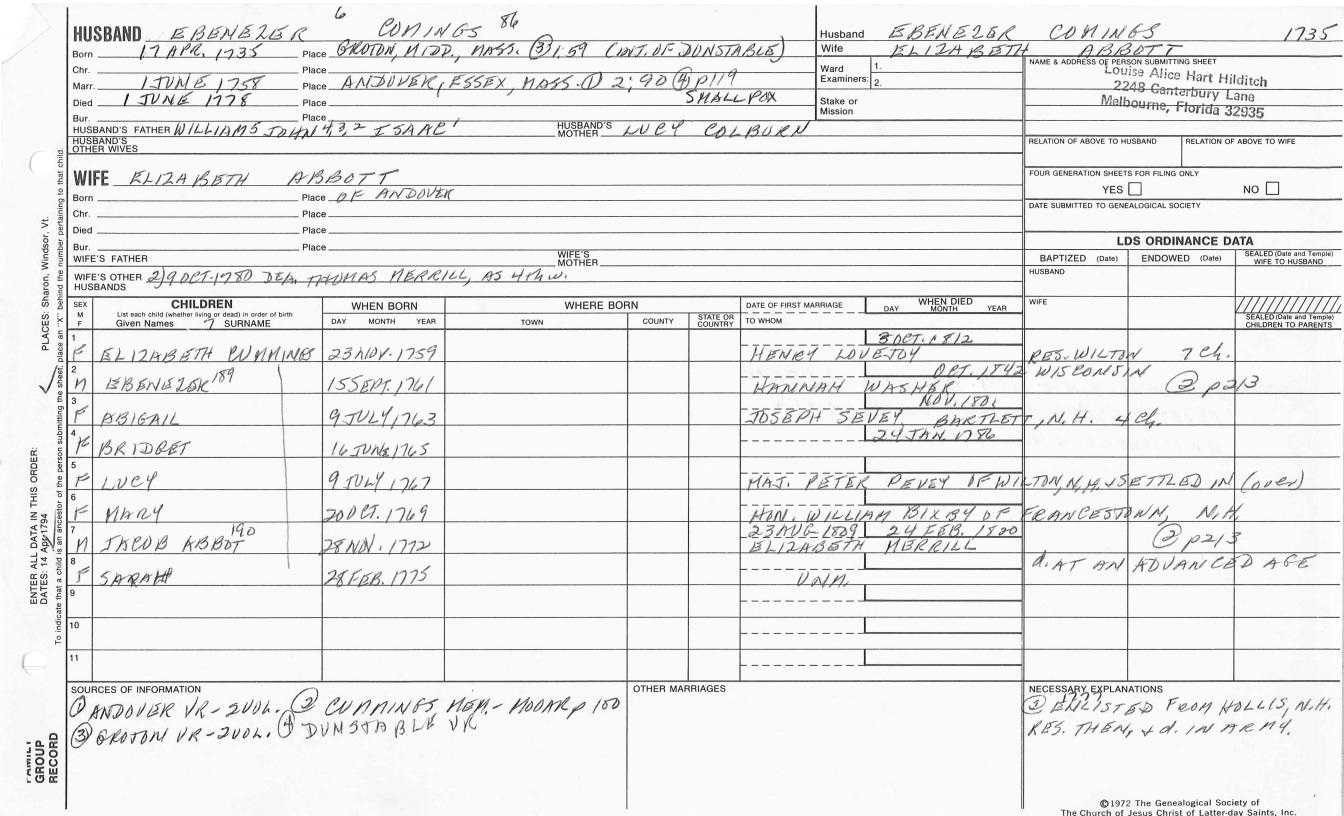 HUSBAND EBENEZER 6 COMINGS 86
Born 17 APR. 1735 Place GROTON, MIDD, MASS. ③ 1.59 (INT. OF DUNSTABLE)
Chr. Place
Marr. 1 JUNE 1758 Place ANDOVER, ESSEX, MASS. ① 2; 90 ④ p119
Died 1 JUNE 1778 Place SMALLPOX
Bur. Place
HUSBAND'S FATHER WILLIAM5 JOHN 4,3,2 ISAAC1 HUSBAND'S MOTHER LUCY COLBURN
HUSBAND'S OTHER WIVES
Husband EBENEZER COMINGS 1735
Wife ELIZABETH ABBOTT
Ward Examiners: 1. 2.
Stake or Mission
NAME & ADDRESS OF PERSON SUBMITTING SHEET
Louise Alice Hart Hilditch
2248 Canterbury Lane
Melbourne, Florida 32935
RELATION OF ABOVE TO HUSBAND RELATION OF ABOVE TO WIFE
FOUR GENERATION SHEETS FOR FILING ONLY
YES NO
DATE SUBMITTED TO GENEALOGICAL SOCIETY
WIFE ELIZABETH ABBOTT
Born Place OF ANDOVER
Chr. Place
Died Place
Bur. Place
WIFE'S FATHER WIFE'S MOTHER
WIFE'S OTHER HUSBANDS 2) 9 OCT. 1780 DEA. THOMAS MERRILL, AS 4th w.
LDS ORDINANCE DATA
BAPTIZED (Date) ENDOWED (Date) SEALED (Date and Temple) WIFE TO HUSBAND
HUSBAND
WIFE
SEALED (Date and Temple) CHILDREN TO PARENTS
SEX M F
CHILDREN
List each child (whether living or dead) in order of birth
Given Names 7 SURNAME
WHEN BORN
DAY MONTH YEAR
WHERE BORN
TOWN COUNTY STATE OR COUNTRY
DATE OF FIRST MARRIAGE
TO WHOM
WHEN DIED
DAY MONTH YEAR
1 F ELIZABETH CUMMINGS 23 NOV. 1759 HENRY LOVEJOY 8 OCT. 1812 RES. WILTON 7 Ch.
2 M EBENEZER 189 15 SEPT. 1761 HANNAH WASHER OCT. 1842 WISCONSIN ② p213
3 F ABIGAIL 9 JULY, 1763 JOSEPH SEVEY, NOV. 180 BARTLETT, N.H. 4 Ch.
4 F BRIDGET 16 JUNE 1765 24 JAN. 1786
5 F LUCY 9 JULY 1767 MAJ. PETER PEVEY OF WILTON, N.H. & SETTLED IN (over)
6 F MARY 20 OCT. 1769 HON. WILLIAM BIXBY OF FRANCESTOWN, N.H.
7 M JACOB ABBOT 190 28 NOV. 1772 23 AUG 1809 ELIZABETH MERRILL 24 FEB. 1820 ② p213
8 F SARAH 28 FEB. 1775 UNM. d. AT AN ADVANCED AGE
9
10
11
SOURCES OF INFORMATION
① ANDOVER VR - 2 VOL. ② CUMMINGS MEM. - MOOAR p 180
③ GROTON VR - 2 VOL. ④ DUNSTABLE VR
OTHER MARRIAGES
NECESSARY EXPLANATIONS
② 1777 ENLISTED FROM HOLLIS, N.H.
RES. THEN, & d. IN ARMY.
©1972 The Genealogical Society of
The Church of Jesus Christ of Latter-day Saints, Inc.
PLACES: Sharon, Windsor, Vt.
ENTER ALL DATA IN THIS ORDER:
DATES: 14 Apr 1794
To indicate that a child is an ancestor of the person submitting the sheet, place an "X" behind the number pertaining to that child.
FAMILY GROUP RECORD